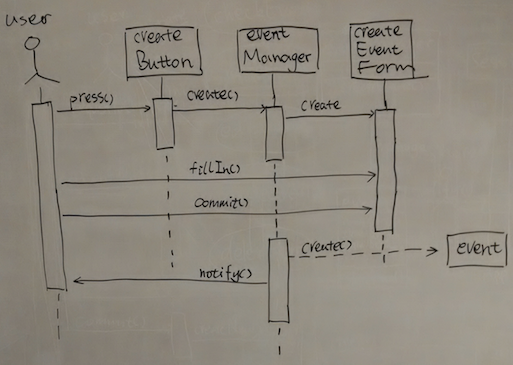 user
create
Button
event
Manager
create
Event
Form
press()
create()
create
fillIn()
commit()
create()
event
notify()